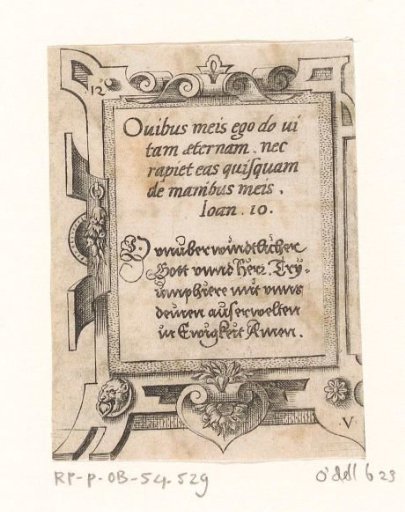 12
Ouibus meis ego do ui
tam æternam. nec
rapiet eas quisquam
de manibus meis.
Ioan. 10.
O vnüberwündtlicher
Gott vnnd Herr. Try,
ümphiere mit vnns
deinen aüserwelten
in Ewigkeit Amen.
V
RP-P-OB-54.529
O'dell b 23